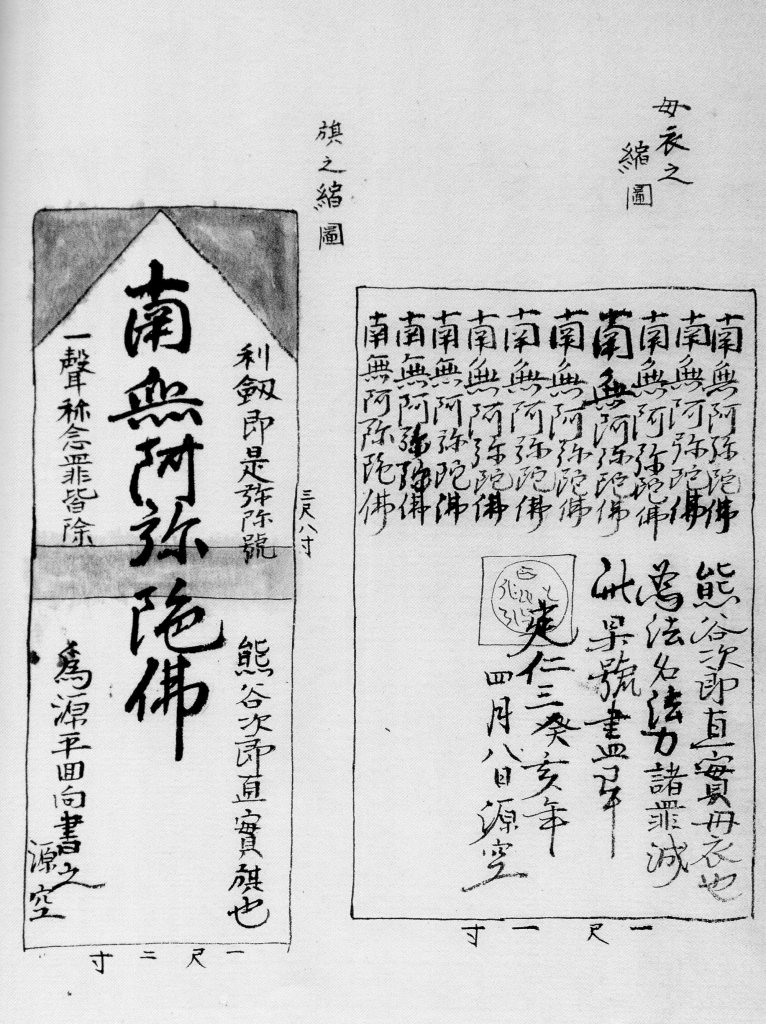 母衣之
縮圖
南無阿弥陀佛
南無阿弥陀佛
南無阿弥陀佛
南無阿弥陀佛
南無阿弥陀佛
南無阿弥陀佛
南無阿弥陀佛
南無阿弥陀佛
南無阿弥陀佛
南無阿弥陀佛
熊谷次郎直實母衣也
為法名法力諸罪滅
此果號書畢
建仁三癸亥年
四月八日源空
一尺一寸
旗之縮圖
三尺八寸
利劔即是弥陀號
南無阿弥陀佛
一聲称念罪皆除
熊谷次郎直實旗也
為源平回向書之
源空
一尺二寸